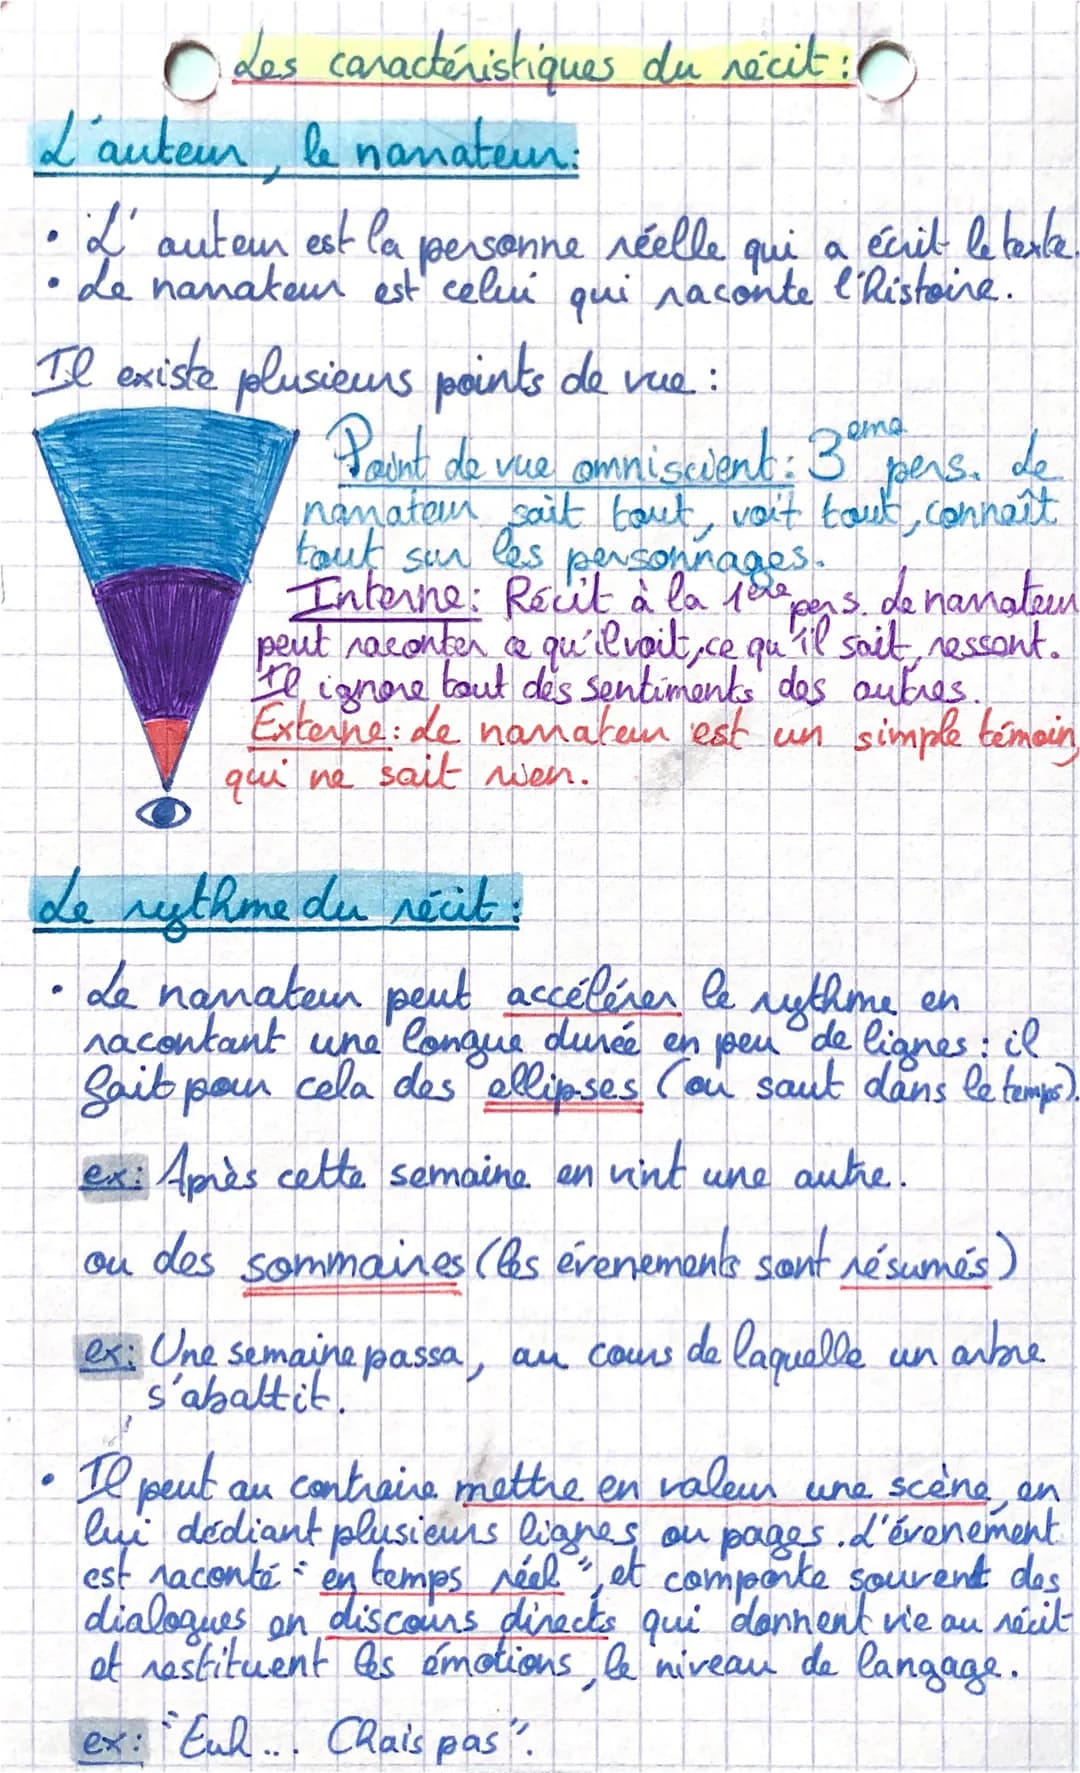 Les caractéristiques du récit :
L'auteur, le narrateur :
• L'auteur est la personne réelle qui a écrit le texte.
• Le narrateur est celui qui raconte l'histoire.
Il existe plusieurs points de vue :
Point de vue omniscient : 3ème pers. Le
narrateur sait tout, voit tout, connaît
tout sur les personnages.
Interne : Récit à la 1ère pers. Le narrateur
peut raconter ce qu'il voit, ce qu'il sait, ressent.
Il ignore tout des sentiments des autres.
Externe : Le narrateur est un simple témoin,
qui ne sait rien.
Le rythme du récit :
• Le narrateur peut accélérer le rythme en
racontant une longue durée en peu de lignes : il
fait pour cela des ellipses (ou saut dans le temps).
ex : Après cette semaine en vint une autre.
ou des sommaires (les évenements sont résumés)
ex : Une semaine passa, au cours de laquelle un arbre
s'abattit.
• Il peut au contraire mettre en valeur une scène, en
lui dédiant plusieurs lignes ou pages. L'évenement
est raconté "en temps réel", et comporte souvent des
dialogues en discours directs qui donnent vie au récit
et restituent les émotions, le niveau de langage.
ex : "Euh... Chais pas".